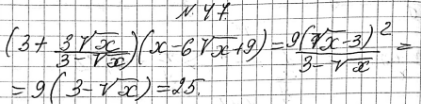 N. 47.
(3 + \frac{3\sqrt{x}}{3-\sqrt{x}})(x-6\sqrt{x}+9) = \frac{9(\sqrt{x}-3)^2}{3-\sqrt{x}} =
= 9(3-\sqrt{x}) = 25.